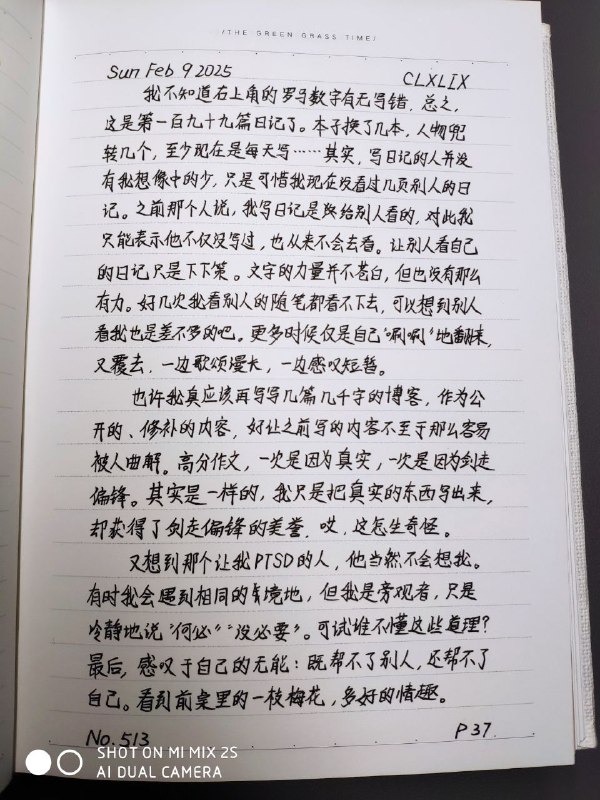 /THE GREEN GRASS TIME/
Sun Feb 9 2025 CLXLIX
我不知道右上角的罗马数字有无写错，总之，
这是第一百九十九篇日记了。本子换了几本，人物兜
转几个，至少现在是每天写……其实，写日记的人并没
有我想像中的少，只是可惜我现在没看过几页别人的日
记。之前那个人说，我写日记是为给别人看的，对此我
只能表示他不仅没写过，也从来不会去看。让别人看自己
的日记只是下下策。文字的力量并不苍白，但也没有那么
有力。好几次我看别人的随笔都看不下去，可以想到别人
看我也是差不多的吧。更多时候仅是自己“唰唰”地翻来，
又覆去，一边歌颂漫长，一边感叹短暂。
也许我真应该再写写几篇几千字的博客，作为公
开的、修补的内容，好让之前写的内容不至于那么容易
被人曲解。高分作文，一次是因为真实，一次是因为剑走
偏锋。其实是一样的，我只是把真实的东西写出来，
却获得了剑走偏锋的美誉，哎，这怎生奇怪。
又想到那个让我PTSD的人，他当然不会想我。
有时我会遇到相同的境地，但我是旁观者，只是
冷静地说“何必”“没必要”。可试谁不懂这些道理？
最后，感叹于自己的无能：既帮不了别人，还帮不了
自己。看到前桌里的一枝梅花，多好的情趣。
No.513 P37
SHOT ON MI MIX 2S
AI DUAL CAMERA